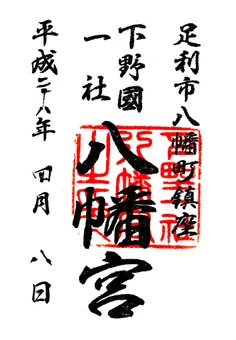 足利市八幡町鎮座
下野國
一社
八幡宮
平成二十八年 四月 八日